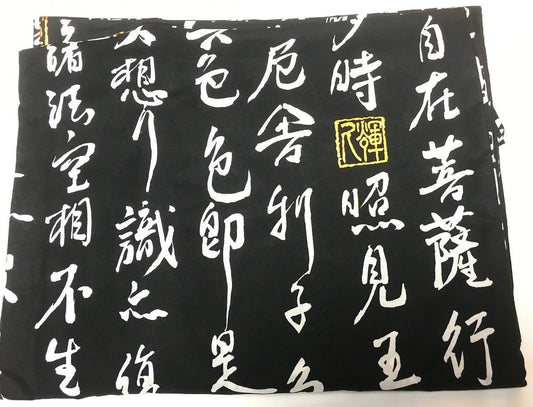 自在菩薩行
時照見五
厄舍利子色
色色即是
想行識亦復
諸法空相不生